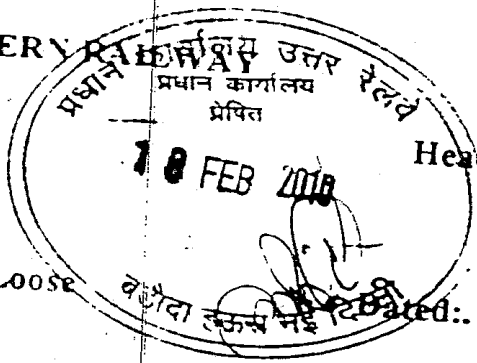 ERN RAILWAY
प्रधान कार्यालय उत्तर रेलवे
प्रधान कार्यालय
प्रेषित
18 FEB 2010
Hea
oose
बड़ौदा हाऊस नई दिल्ली
Dated:.